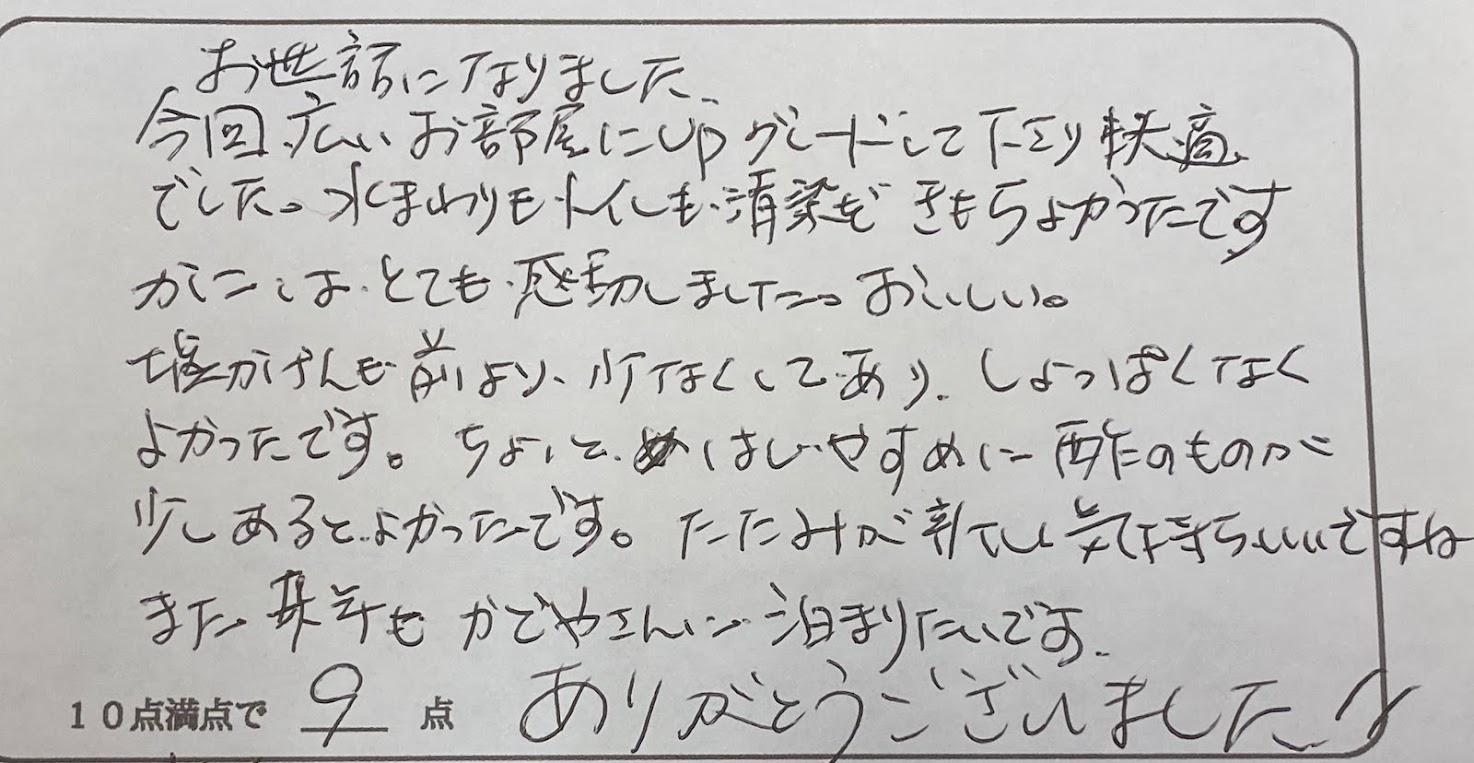 お世話になりました。
今回、広いお部屋にupグレードして下さり快適
でした。水まわりもトイレも清潔で きもちよかったです
かには、とても感動しました。おいしい。
塩かげんも前より、少なくしてあり、しょっぱくなく
よかったです。ちょいと はしやすめに酢のものが
少しあるとよかったです。たたみが新しく気持ちいいですね
また来年も かどやさんに泊まりたいです。
10点満点で 9 点 ありがとうございました